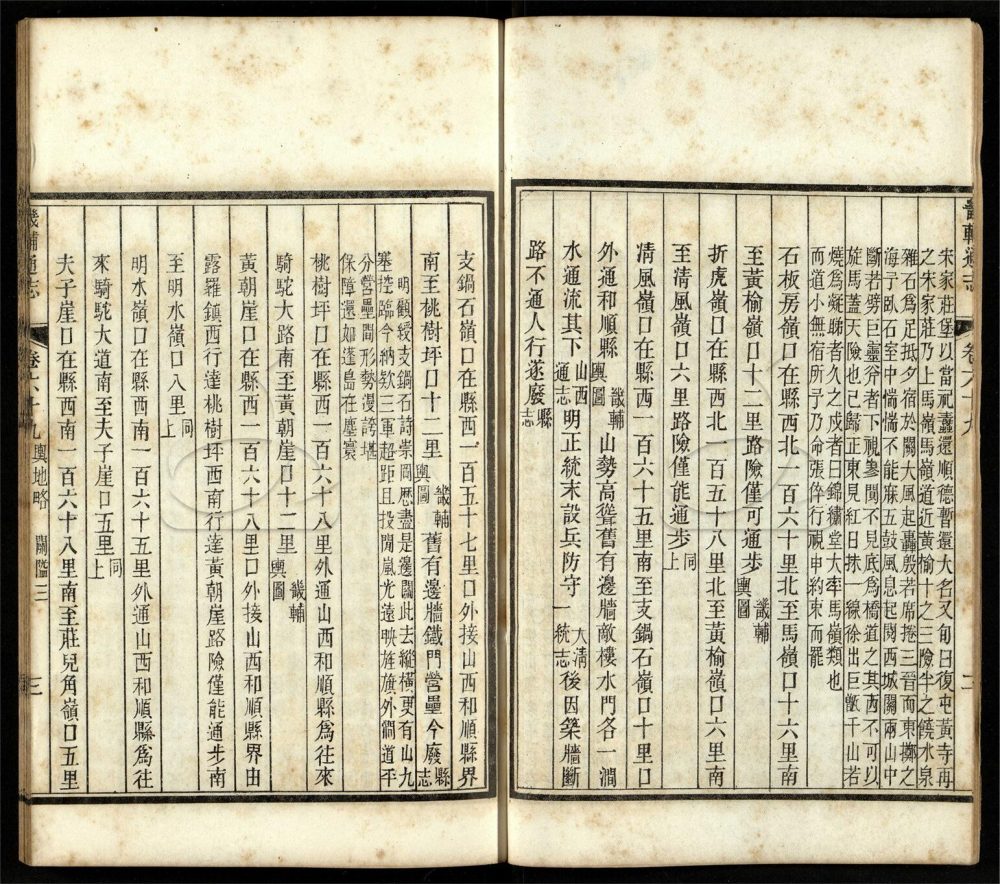 畿輔通志 卷六十九
宋家莊堡以當礟蠹還順德暫還大名又旬日復屯黃寺再
之宋家莊乃上馬嶺馬嶺道近黃榆十之三險半之饒水泉
雜石爲足抵夕宿於關大風起轟殷若席捲三晉而東擲之
海予臥石室中惴惴不能寐五鼓風息起閱西城關兩山中
斷若劈巨靈斧者下視嵾閜不見底爲橋道之其西不可以
旋馬蓋天險也已歸正東見紅日抹一線徐出巨甑千山若
燒爲凝睇者久之戍者曰錦繡堂大率馬嶺類也
而道小無宿所予乃命張倅行視申約束而罷
石板房嶺口在縣西北一百六十里北至馬嶺口十六里南
至黃榆嶺口十二里路險僅可通步畿輔輿圖
折虎嶺口在縣西北一百五十八里北至黃榆嶺口六里南
至清風嶺口六里路險僅能通步同上
清風嶺口在縣西一百六十五里南至支鍋石嶺口十里口
外通和順縣畿輔輿圖山勢高聳舊有邊牆敵樓水門各一澗
水通流其下山西通志明正統末設兵防守大清一統志後因築牆斷
路不通人行遂廢縣志
支鍋石嶺口在縣西一百五十七里口外接山西和順縣界
南至桃樹坪口十二里畿輔輿圖舊有邊牆鐵門營壘今廢縣志
明顧綬支鍋石詩崇岡歷盡是邊關此去縱橫更有山九
塞控臨今納欵三軍超距且投閒嵐光遠映旌旗外澗道平
分營壘間形勢漫誇堪
保障還如蓬島在塵寰
桃樹坪口在縣西一百六十八里外通山西和順縣爲往來
騎駝大路南至黃朝崖口十二里畿輔輿圖
黃朝崖口在縣西一百六十八里口外接山西和順縣界由
露羅鎮西行達桃樹坪西南行達黃朝崖路險僅能通步南
至明水嶺口八里同上
明水嶺口在縣西南一百六十五里外通山西和順縣爲往
來騎駝大道南至夫子崖口五里同上
夫子崖口在縣西南一百六十八里南至莊兒角嶺口五里
畿輔通志 卷六十九 輿地略 關隘三 三